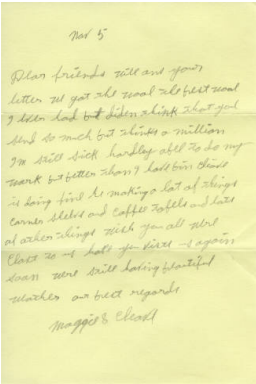 Nov 5
Dear friends will ans your
letter we got the wool the best wool
I ever had but diden think that you
send so much but thinks a million
I'm still sick hardley able to do my
work but better than I have bin Cleave
is doing fine he making a lot of things
corner shelvs and coffee tabels and lots
of other things wish you all were
close to us hope you visit us again
soon were still having beautiful
weather our best regards
Maggie &